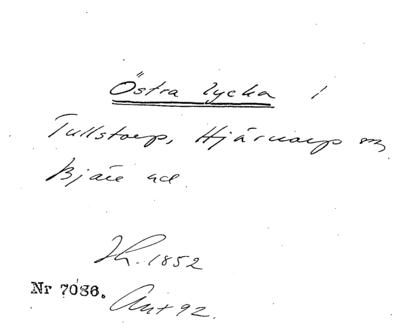 Östra lycka i
Tullstorp, Hjärnarp sn,
Bjäre hd.
Jh. 1852
Nr 7086.
Ant 92.